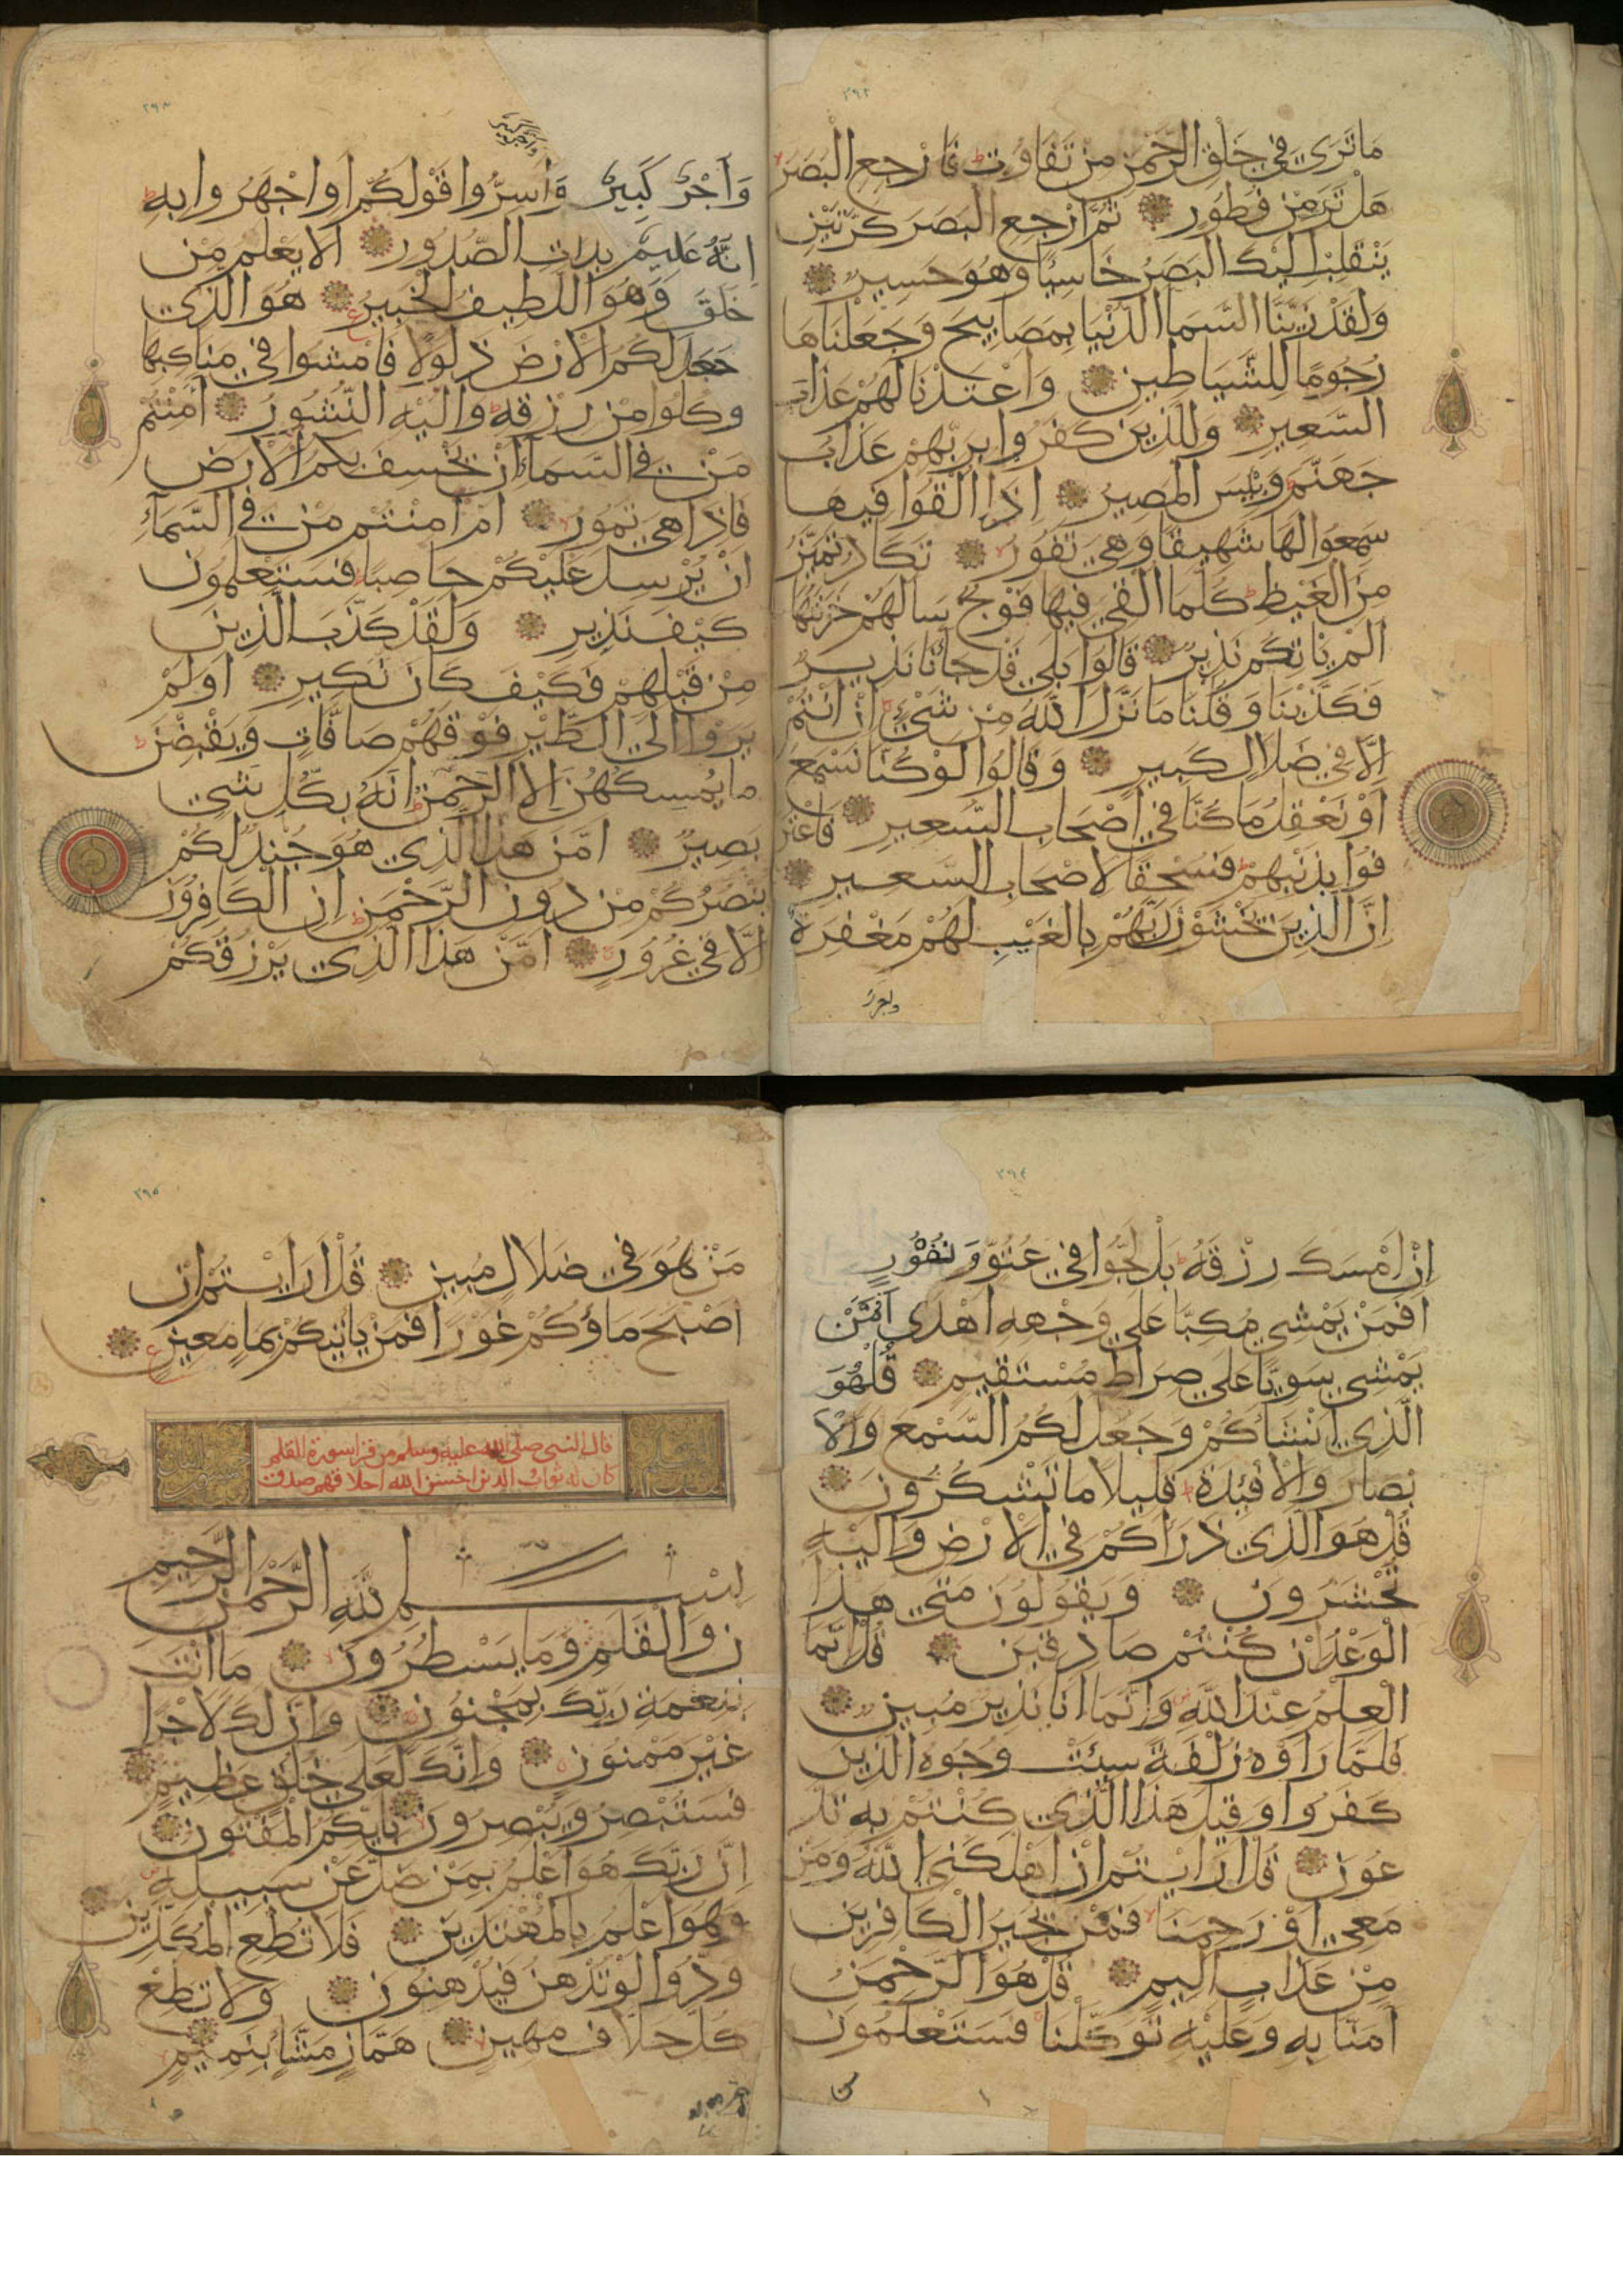 ٢٩٢
ما تَرَى فِي خَلْقِ الرَّحْمنِ مِنْ تَفَاوُتٍ فَارْجِعِ الْبَصَرَ
هَلْ تَرَى مِنْ فُطُورٍ ثُمَّ ارْجِعِ الْبَصَرَ كَرَّتَيْنِ
يَنْقَلِبْ اِلَيْكَ الْبَصَرُ خَاسِئًا وَهُوَ حَسِيرٌ
وَلَقَدْ زَيَّنَّا السَّمَا الدُّنْيَا بِمَصَابِيحَ وَجَعَلْنَاهَا
رُجُومًا لِلشَّيَاطِينِ وَاَعْتَدْنَا لَهُمْ عَذَابَ
السَّعِيرِ وَلِلَّذِينَ كَفَرُوا بِرَبِّهِمْ عَذَابُ
جَهَنَّمَ وَبِئْسَ الْمَصِيرُ اِذَا اُلْقُوا فِيهَا
سَمِعُوا لَهَا شَهِيقًا وَهِيَ تَفُورُ تَكَادُ تَمَيَّزُ
مِنَ الْغَيْظِ كُلَّمَا اُلْقِيَ فِيهَا فَوْجٌ سَاَلَهُمْ خَزَنَتُهَا
اَلَمْ يَاْتِكُمْ نَذِيرٌ قَالُوا بَلَى قَدْ جَاَنَا نَذِيرٌ
فَكَذَّبْنَا وَقُلْنَا مَا نَزَّلَ اللَّهُ مِنْ شَيْءٍ اِنْ اَنْتُمْ
اِلَّا فِي ضَلَالٍ كَبِيرٍ وَقَالُوا لَوْ كُنَّا نَسْمَعُ
اَوْ نَعْقِلُ مَا كُنَّا فِي اَصْحَابِ السَّعِيرِ فَاعْتَرَ
فُوا بِذَنْبِهِمْ فَسُحْقًا لِاَصْحَابِ السَّعِيرِ
اِنَّ الَّذِينَ يَخْشَوْنَ رَبَّهُمْ بِالْغَيْبِ لَهُمْ مَغْفِرَةٌ
واجر
٢٩٣
وَاَجْرٌ كَبِيرٌ وَاَسِرُّوا قَوْلَكُمْ اَوِ اجْهَرُوا بِهِ
اِنَّهُ عَلِيمٌ بِذَاتِ الصُّدُورِ اَلَا يَعْلَمُ مَنْ
خَلَقَ وَهُوَ اللَّطِيفُ الْخَبِيرُ هُوَ الَّذِي
جَعَلَ لَكُمُ الْاَرْضَ ذَلُولًا فَامْشُوا فِي مَنَاكِبِهَا
وَكُلُوا مِنْ رِزْقِهِ وَاِلَيْهِ النُّشُورُ ءَاَمِنْتُمْ
مَنْ فِي السَّمَاءِ اَنْ يَخْسِفَ بِكُمُ الْاَرْضَ
فَاِذَا هِيَ تَمُورُ اَمْ اَمِنْتُمْ مَنْ فِي السَّمَآءِ
اَنْ يُرْسِلَ عَلَيْكُمْ حَاصِبًا فَسَتَعْلَمُونَ
كَيْفَ نَذِيرِ وَلَقَدْ كَذَّبَ الَّذِينَ
مِنْ قَبْلِهِمْ فَكَيْفَ كَانَ نَكِيرِ اَوَلَمْ
يَرَوْا اِلَى الطَّيْرِ فَوْقَهُمْ صَافَّاتٍ وَيَقْبِضْنَ
مَا يُمْسِكُهُنَّ اِلَّا الرَّحْمنُ اِنَّهُ بِكُلِّ شَيْءٍ
بَصِيرٌ اَمَّنْ هَذَا الَّذِي هُوَ جُنْدٌ لَكُمْ
يَنْصُرُكُمْ مِنْ دُونِ الرَّحْمَنِ اِنِ الْكَافِرُونَ
اِلَّا فِي غُرُورٍ اَمَّنْ هَذَا الَّذِي يَرْزُقُكُمْ
٢٩٤
اِنْ اَمْسَكَ رِزْقَهُ بَلْ لَجُّوا فِي عُتُوٍّ وَنُفُورٍ
اَفَمَنْ يَمْشِي مُكِبًّا عَلَى وَجْهِهِ اَهْدَى اَمَّنْ
يَمْشِي سَوِيًّا عَلَى صِرَاطٍ مُسْتَقِيمٍ قُلْ هُوَ
الَّذِي اَنْشَاَكُمْ وَجَعَلَ لَكُمُ السَّمْعَ وَالْاَ
بْصَارَ وَالْاَفْئِدَةَ قَلِيلًا مَا تَشْكُرُونَ
قُلْ هُوَ الَّذِي ذَرَاَكُمْ فِي الْاَرْضِ وَاِلَيْهِ
تُحْشَرُونَ وَيَقُولُونَ مَتَى هَذَا
الْوَعْدُ اِنْ كُنْتُمْ صَادِقِينَ قُلْ اِنَّمَا
الْعِلْمُ عِنْدَ اللَّهِ وَاِنَّمَا اَنَا نَذِيرٌ مُبِينٌ
فَلَمَّا رَاَوْهُ زُلْفَةً سِيئَتْ وُجُوهُ الَّذِينَ
كَفَرُوا وَقِيلَ هَذَا الَّذِي كُنْتُمْ بِهِ تَدَّ
عُونَ قُلْ اَرَاَيْتُمْ اِنْ اَهْلَكَنِيَ اللَّهُ وَمَنْ
مَعِيَ اَوْ رَحِمَنَا فَمَنْ يُجِيرُ الْكَافِرِينَ
مِنْ عَذَابٍ اَلِيمٍ قُلْ هُوَ الرَّحْمَنُ
اَمَنَّا بِهِ وَعَلَيْهِ تَوَكَّلْنَا فَسَتَعْلَمُونَ
من
٢٩٥
مَنْ هُوَ فِي ضَلَالٍ مُبِينٍ قُلْ اَرَاَيْتُمْ اِنْ
اَصْبَحَ مَاؤُكُمْ غَوْرًا فَمَنْ يَاْتِيكُمْ بِمَاءٍ مَعِينٍ
قال النبي صلى الله عليه وسلم من قرا سورة القلم
كان له ثواب الذين احسن الله اخلاقهم صدق
بِسْمِ اللَّهِ الرَّحْمَنِ الرَّحِيمِ
ن وَالْقَلَمِ وَمَا يَسْطُرُونَ مَا اَنْتَ
بِنِعْمَةِ رَبِّكَ بِمَجْنُونٍ وَاِنَّ لَكَ لَاَجْرًا
غَيْرَ مَمْنُونٍ وَاِنَّكَ لَعَلَى خُلُقٍ عَظِيمٍ
فَسَتُبْصِرُ وَيُبْصِرُونَ بِاَيِّكُمُ الْمَفْتُونُ
اِنَّ رَبَّكَ هُوَ اَعْلَمُ بِمَنْ ضَلَّ عَنْ سَبِيلِهِ
وَهُوَ اَعْلَمُ بِالْمُهْتَدِينَ فَلَا تُطِعِ الْمُكَذِّبِينَ
وَدُّوا لَوْ تُدْهِنُ فَيُدْهِنُونَ وَلَا تُطِعْ
كُلَّ حَلَّافٍ مَهِينٍ هَمَّازٍ مَشَّاءٍ بِنَمِيمٍ